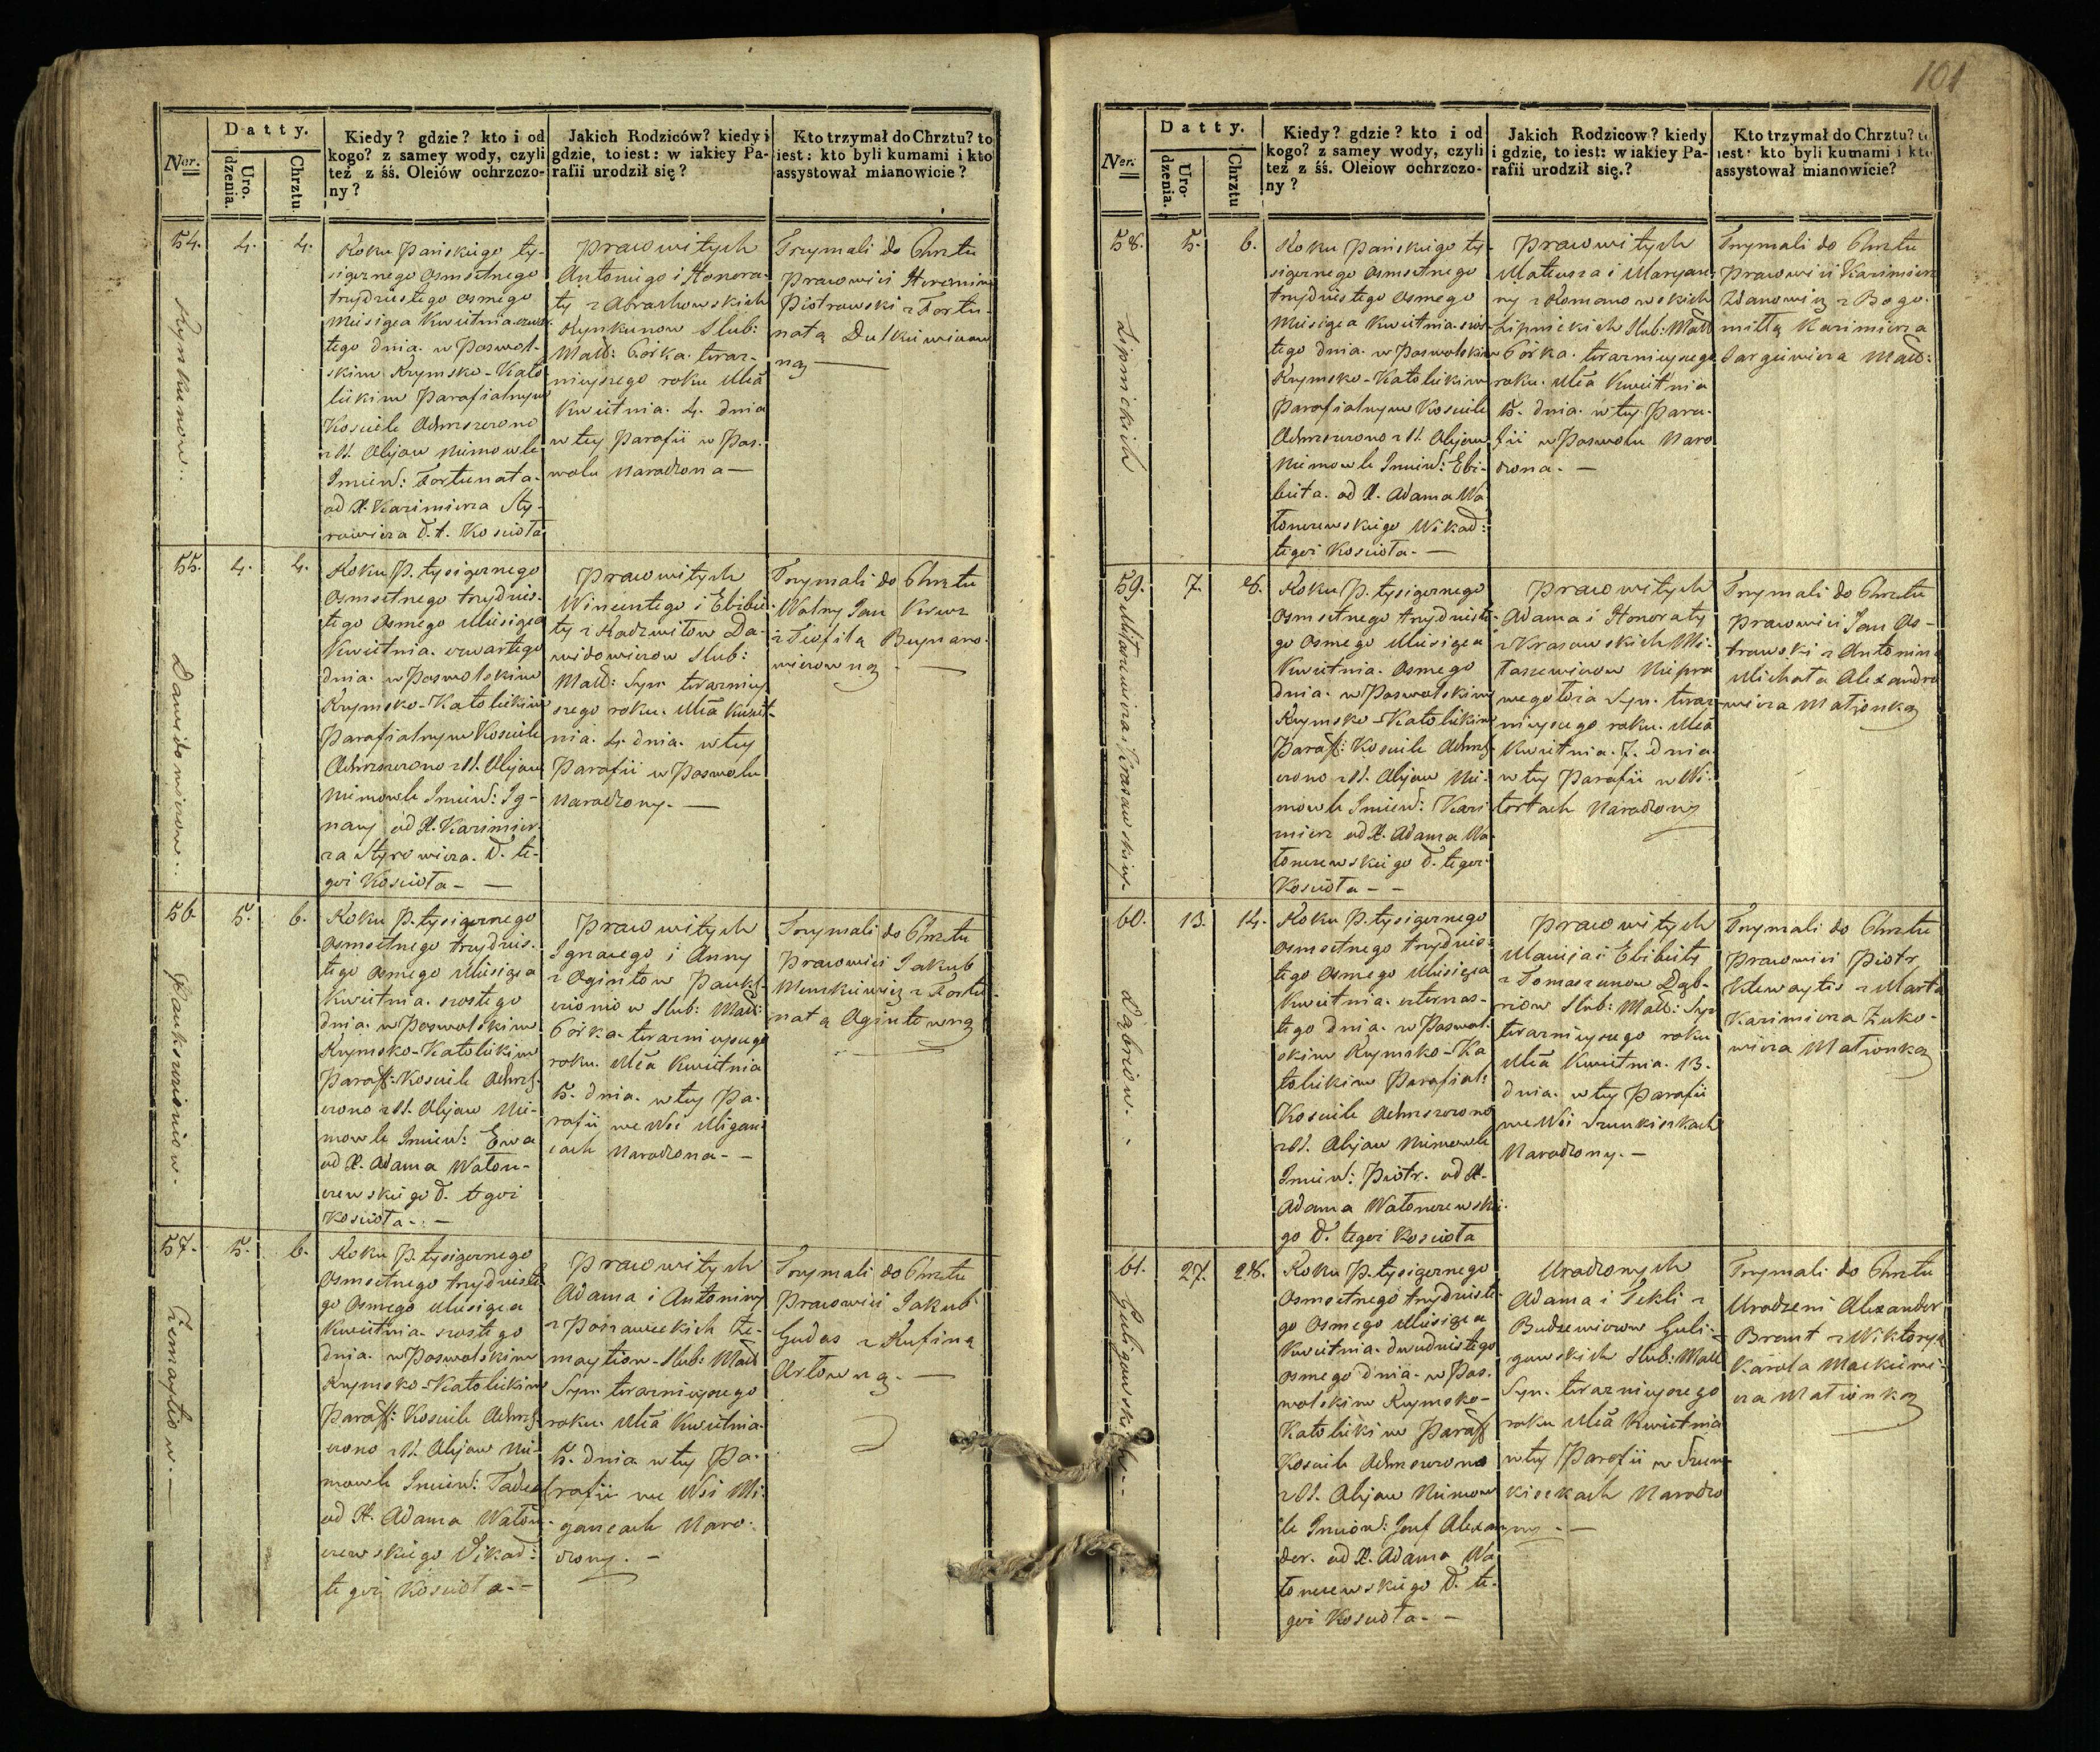 101
Datty.
Ner.
Uro.
dzenia.
Chrztu
Kiedy? gdzie? kto i od
kogo? z samey wody, czyli
też z śś. Oleiów ochrzczo-
ny?
Jakich Rodziców? kiedy i
gdzie, to iest: w iakiey Pa-
rafii urodził się?
Kto trzymał do Chrztu? to
iest: kto byli kumami i kto
assystował mianowicie?
54. 4. 4.
Roku Pańskiego ty-
siącznego osmsetnego
trzydziestego osmego
Miesiąca Kwietnia czwar
tego dnia w Poswol-
skim Rzymsko-Kato
lickim Parafialnym
Kosciele Ochrzczono
z SS. Olejow Niemowle
Imien: Fortunata
od X. Kazimierza Sty-
rowicza D. t. Koscioła
Prawowitych
Antoniego i Honora-
ty z Abrachowskich
Rynkunow Slub:
Małż: Córka teraz-
nieyszego roku Mca
Kwietnia 4. dnia
w tey Parafii w Pos-
wolu Narodzona —
Trzymali do Chrztu
Prawowici Heronim
Piotrowski z Fortu-
natą Dulkiewiczow
ną —
55. 4. 4.
Dawidowiczow
Roku P. tysiącznego
osmsetnego trzydzies-
tego osmego Miesiąca
Kwietnia czwartego
dnia w Poswolskim
Rzymsko-Katolickim
Parafialnym Kosciele
Ochrzczono z SS. Olejow
Niemowle Imien: Ig-
nacy od X. Kazimier-
za Styrowicza D. te-
goż Koscioła —
Prawowitych
Wincentego i Elżbie
ty z Radzwiłow Da-
widowiczow Slub:
Małż: Syn terazniey
szego roku Mca Kwiet-
nia 4. dnia w tey
Parafii w Poswolu
Narodzony. —
Trzymali do Chrztu
Wolny Jan
z Teofilą
wiczowną —
56. 5. 6.
Roku P. tysiącznego
osmsetnego trzydzies-
tego osmego Miesiąca
Kwietnia szostego
dnia w Poswolskim
Rzymsko-Katolickim
Paraff: Kosciele Ochrz-
czono z SS. Olejow Nie-
mowle Imien: Ewa
od X. Adama Waton-
czewskiego D. tegoż
Kosciola —
Prawowitych
Ignacego i Anny
z Ogintow Pauks-
cioniow Slub: Małż:
Córka teraznieyszego
roku Mca Kwietnia
5. dnia w tey Pa-
rafii we Wsi Migan-
cach Narodzona —
Trzymali do Chrztu
Prawowici Jakub
z Fortu-
natą Ogintowną
57. 5. 6.
Żemaytiow. —
Roku P. tysiącznego
osmsetnego trzydzieste
go osmego Miesiąca
Kwietnia szostego
dnia w Poswolskim
Rzymsko-Katolickim
Paraff: Kosciele Ochrz-
czono z SS. Olejow Nie-
mowle Imien: Tadeu
od X. Adama Waton-
czewskiego Wikar:
tegoż Kosciola —
Prawowitych
Adama i Antoniny
z Poszaweckich Że-
maytiow Slub: Małż
Syn teraznieyszego
roku Mca Kwietnia
5. dnia w tey Pa-
rafii we Wsi Mi-
gancach Naro-
dzony. —
Trzymali do Chrztu
Prawowici Jakub
Gudas z Rufiną
Ortowną —
Datty.
Ner.
Uro-
dzenia.
Chrztu
Kiedy? gdzie? kto i od
kogo? z samey wody, czyli
też z śś. Oleiow ochrzczo-
ny?
Jakich Rodzicow? kiedy
i gdzie, to iest: w iakiey Pa-
rafii urodził się.?
Kto trzymał do Chrztu? to
iest: kto byli kumami i kto
assystował mianowicie?
58. 5. 6.
Lipnickich
Roku Pańskiego ty-
siącznego osmsetnego
trzydziestego osmego
Miesiąca Kwietnia szos-
tego dnia w Poswolskim
Rzymsko-Katolickim
Parafialnym Kosciele
Ochrzczono z SS. Olejow
Niemowle Imien: Elż-
bieta od X. Adama Wa
tonczewskiego Wikar:
tegoż Kosciola. —
Prawowitych
Mateusza i Maryan-
ny z Romanowskich
Lipnickich Slub: Małż
Córka teraznieyszego
roku Mca Kwietnia
5. dnia w tey Para-
fii w Poswolu Naro
dzona. —
Trzymali do Chrztu
Prawowici Kazimierz
Zdanowicz z Bogo-
miłlą Kazimierza
Małż:
59. 7. 8.
Roku P. tysiącznego
osmsetnego trzydzieste
go osmego Miesiąca
Kwietnia osmego
dnia w Poswolskim
Rzymsko-Katolickim
Paraff: Kosciele Ochrz-
czono z SS. Olejow Nie-
mowle Imien: Kazi
mierz od X. Adama Wa-
tonczewskiego D. tegoż
Kosciola —
Prawowitych
Adama i Honoraty
z Krasowskich Mi-
taszewiczow Niepra
wego łoża Syn teraz
nieyszego roku Mca
Kwietnia 7. dnia
w tey Parafii w Wi-
tortach Narodzony
Trzymali do Chrztu
Prawowici Jan Os-
trowski z Antoniną
Michała Alexandro
wicza Małżonką
60. 13. 14.
Dąbriow.
Roku P. tysiącznego
osmsetnego trzydzies-
tego osmego Miesiąca
Kwietnia czternas-
tego dnia w Poswol-
skim Rzymsko-Ka
tolickim Parafial:
Kosciele Ochrzczono
z SS. Olejow Niemowle
Imien: Piotr od X.
Adama Watonczewskie-
go D. tegoż Kosciola
Prawowitych
Macieja i Elżbiety
z Tomaszunow Dąb-
riow Slub: Małż: Syn
teraznieyszego roku
Mca Kwietnia 13.
dnia w tey Parafii
we Wsi Szunkiszkach
Narodzony. —
Trzymali do Chrztu
Prawowici Piotr
z Martą
Kazimierza Żuko-
wicza Małżonką
61. 27. 28.
Roku P. tysiącznego
osmsetnego trzydzieste-
go osmego Miesiąca
Kwietnia dwudziestego
osmego dnia w Pos-
wolskim Rzymsko-
Katolickim Paraff
Kosciele Ochrzczono
z SS. Olejow Niemow
le Imion: Jozef Alexan
der od X. Adama Wa
tonczewskiego D. te-
goż Kosciola. —
Urodzonych
Adama i Tekli z
Budzewiczow Guli-
gowskich Slub: Małż
Syn teraznieyszego
roku Mca Kwietnia
w tey Parafii w Szun-
kiszkach Narodzo
ny —
Trzymali do Chrztu
Urodzeni Alexander
Bramt z Wiktoryą
Karola Mackiewi-
cza Małżonką